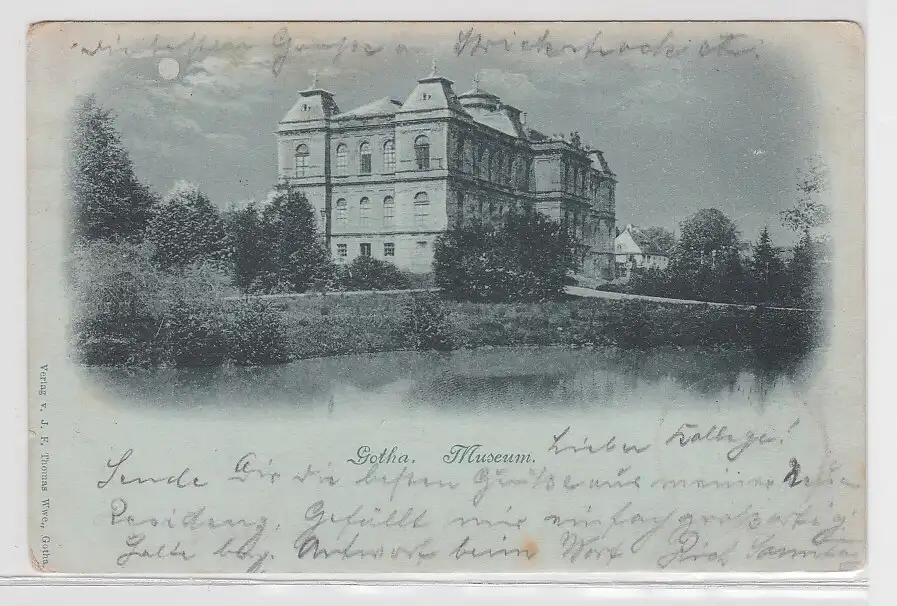 die besten Grüße
Gotha. Museum.
Lieber Kollege!
Sende Dir die besten Grüße aus meiner Neuen
Residenz. Gefällt mir einfach großartig!
Halte bzgl. Antwort beim Wort
Verlag v. J. F. Thomas Wwe., Gotha.